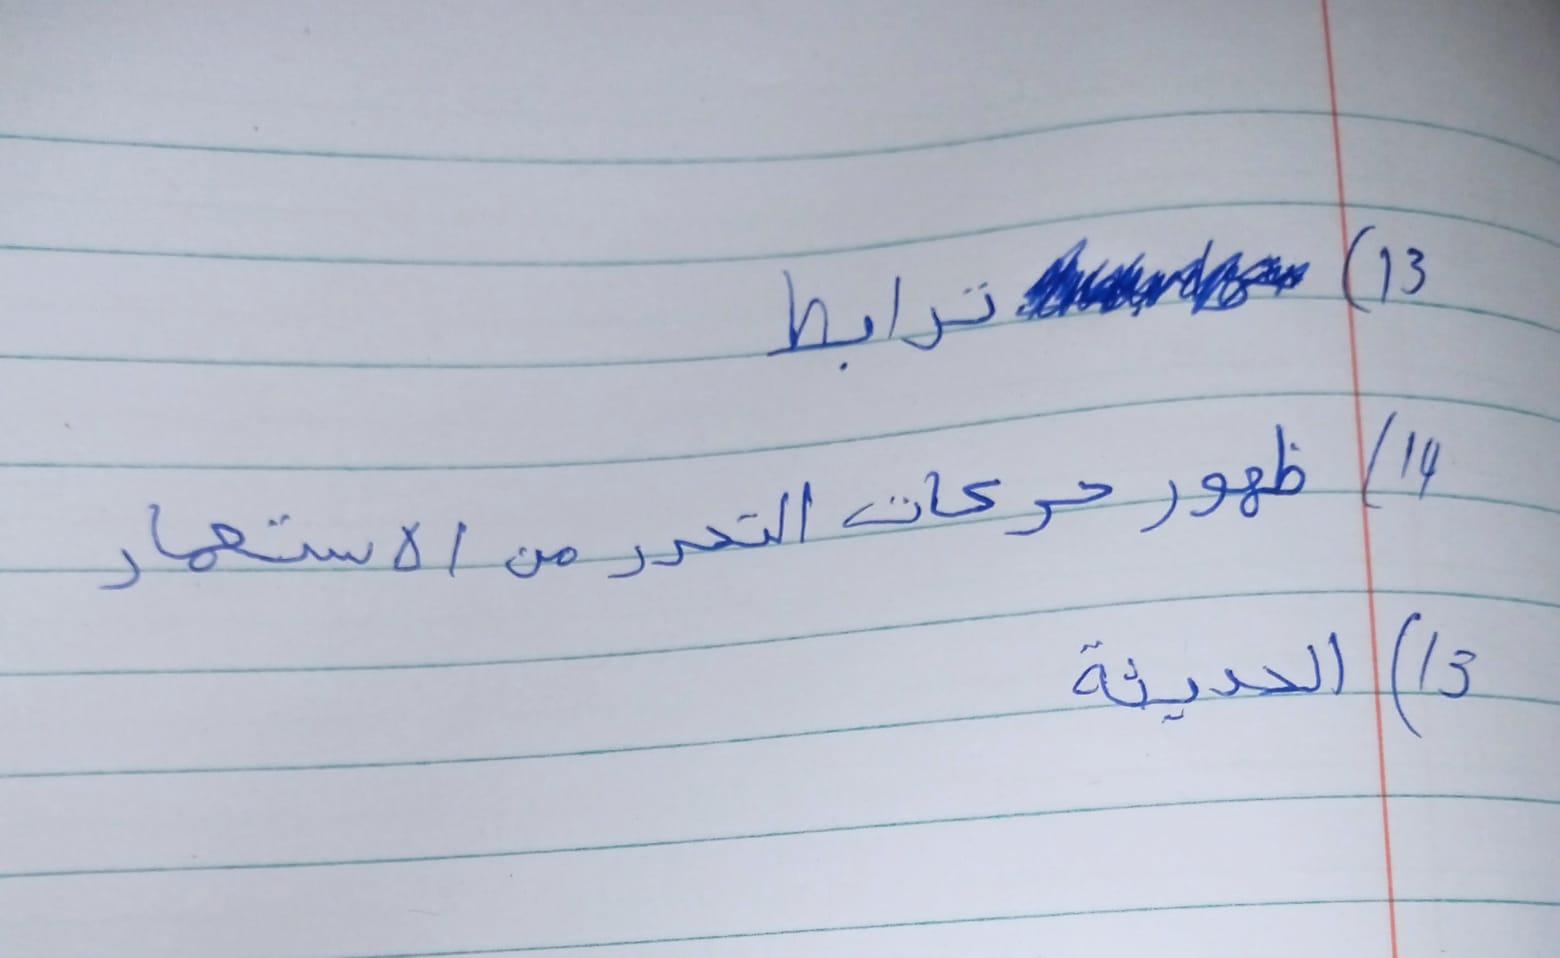 13) ترابط
14) ظهور حركات التحرر من الاستعمار
13) الحديثة